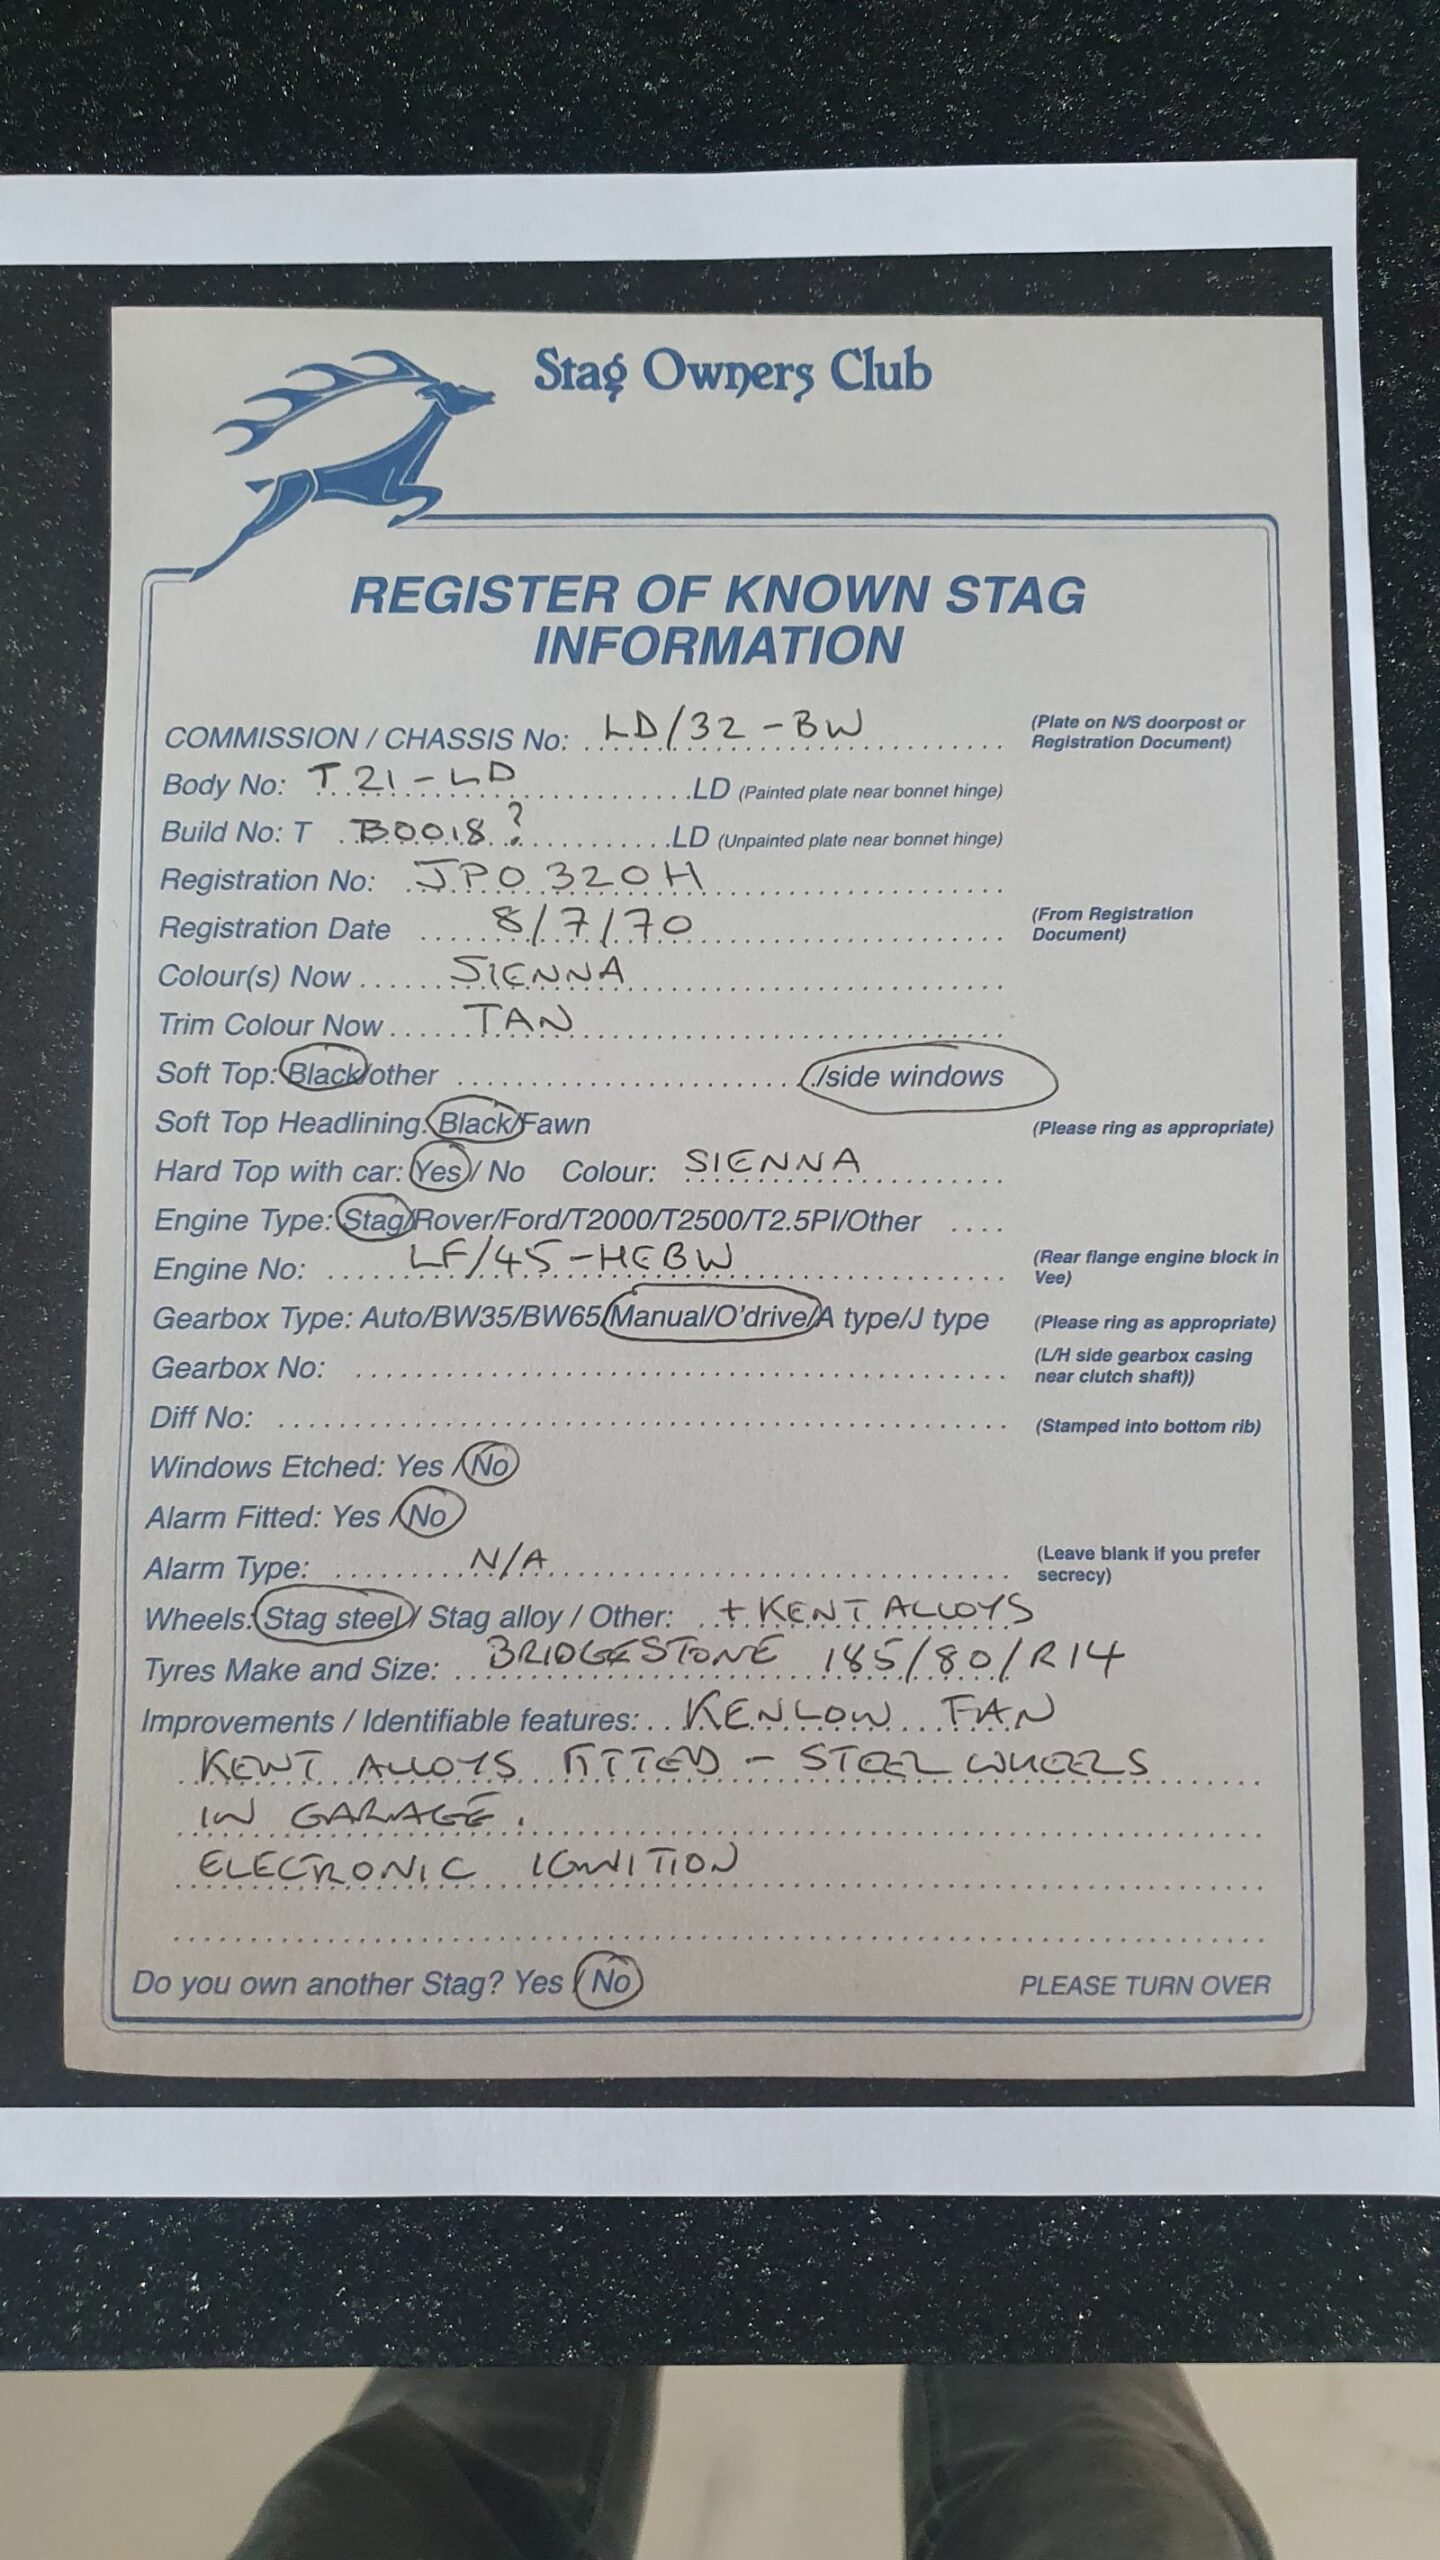 Stag Owners Club
REGISTER OF KNOWN STAG
INFORMATION
COMMISSION / CHASSIS No: LD/32-BW (Plate on N/S doorpost or
Registration Document)
Body No: T 21-LD LD (Painted plate near bonnet hinge)
Build No: T B0018? LD (Unpainted plate near bonnet hinge)
Registration No: JPO 320H
Registration Date 8/7/70 (From Registration
Document)
Colour(s) Now SIENNA
Trim Colour Now TAN
Soft Top: Black/other ./side windows
Soft Top Headlining: Black/Fawn (Please ring as appropriate)
Hard Top with car: Yes / No Colour: SIENNA
Engine Type: Stag/Rover/Ford/T2000/T2500/T2.5PI/Other
Engine No: LF/45-HEBW (Rear flange engine block in
Vee)
Gearbox Type: Auto/BW35/BW65/Manual/O'drive/A type/J type (Please ring as appropriate)
Gearbox No: (L/H side gearbox casing
near clutch shaft))
Diff No: (Stamped into bottom rib)
Windows Etched: Yes / No
Alarm Fitted: Yes / No
Alarm Type: N/A (Leave blank if you prefer
secrecy)
Wheels: Stag steel / Stag alloy / Other: + KENT ALLOYS
Tyres Make and Size: BRIDGESTONE 185/80/R14
Improvements / Identifiable features: KENLOW FAN
KENT ALLOYS FITTED - STEEL WHEELS
IN GARAGE.
ELECTRONIC IGNITION
Do you own another Stag? Yes / No PLEASE TURN OVER